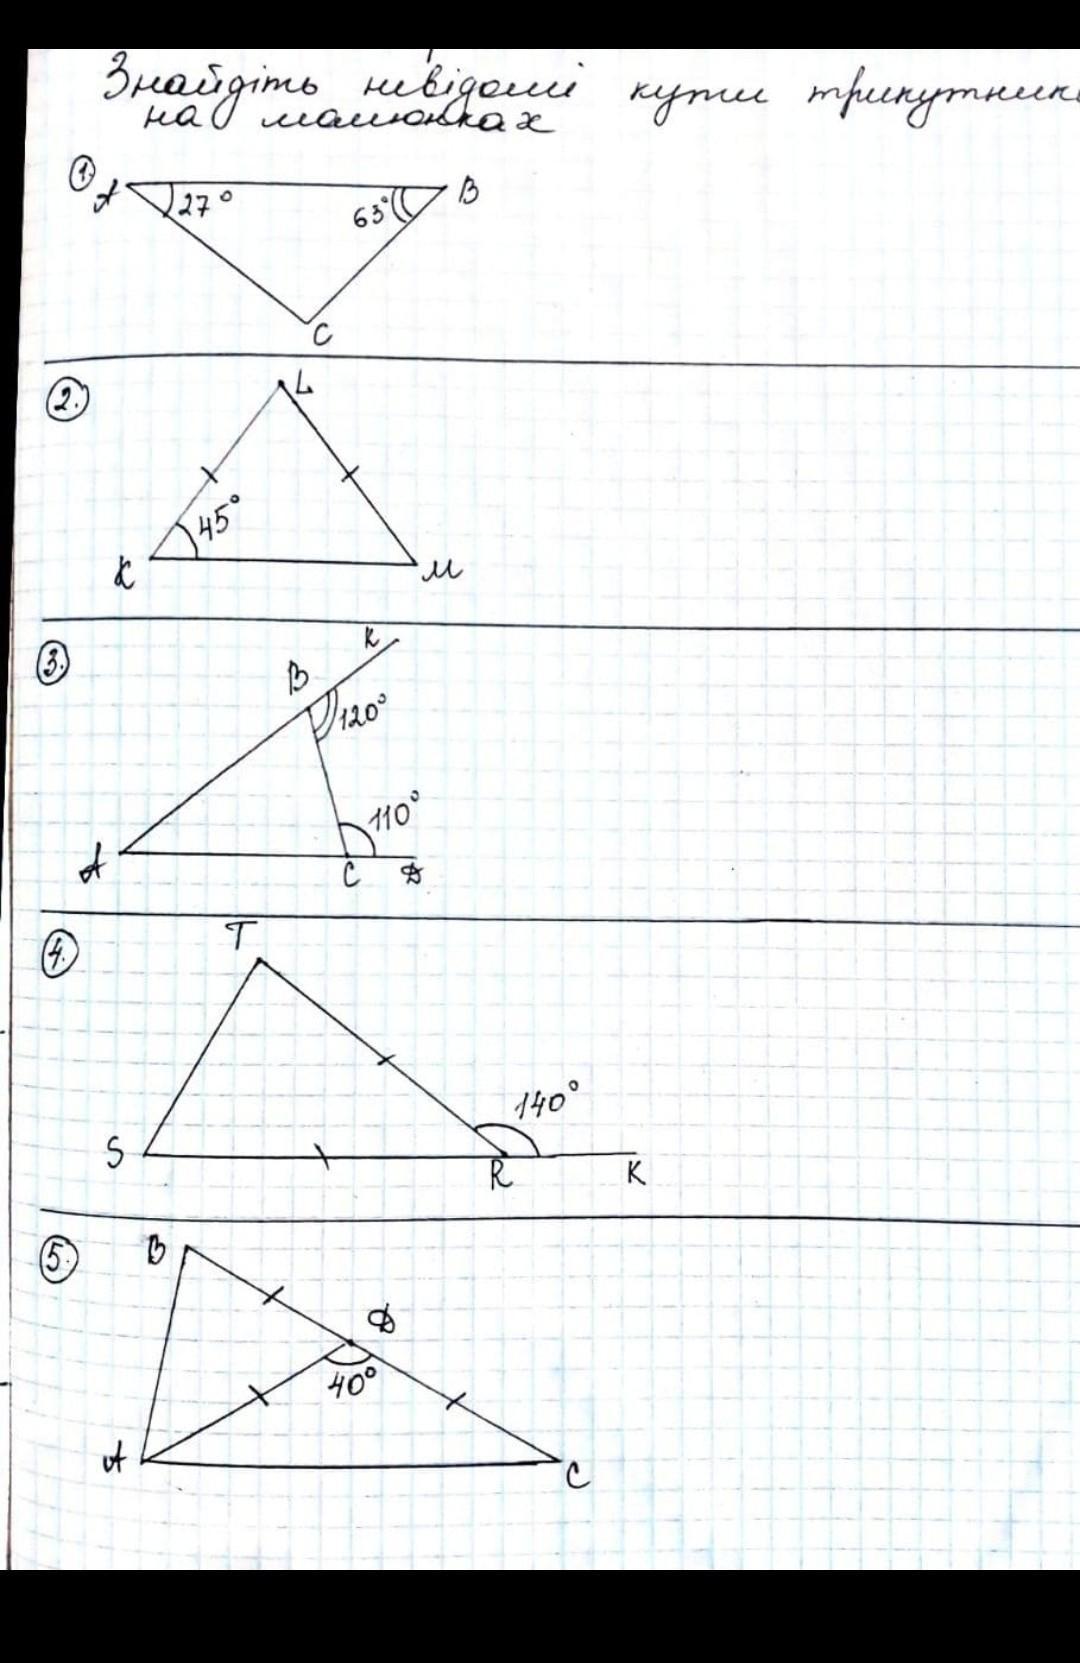 Знайдіть невідомі кути трикутник
на малюнках
1.
A 27° 63° B
C
2.
L
45°
K M
3.
K
B
120°
110°
A C D
4.
T
140°
S R K
5.
B
D
40°
A C